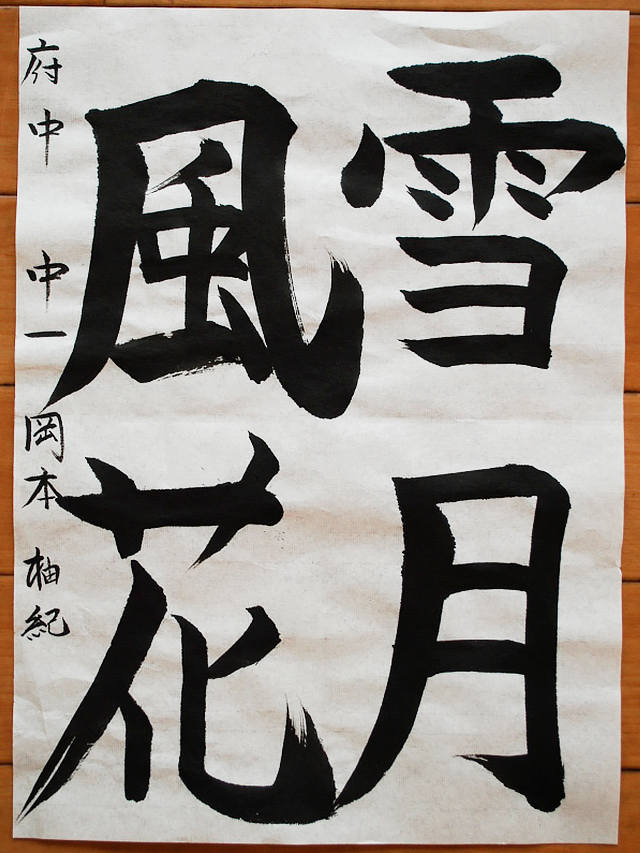 雪月
風花
府中 中一 岡本 柚紀